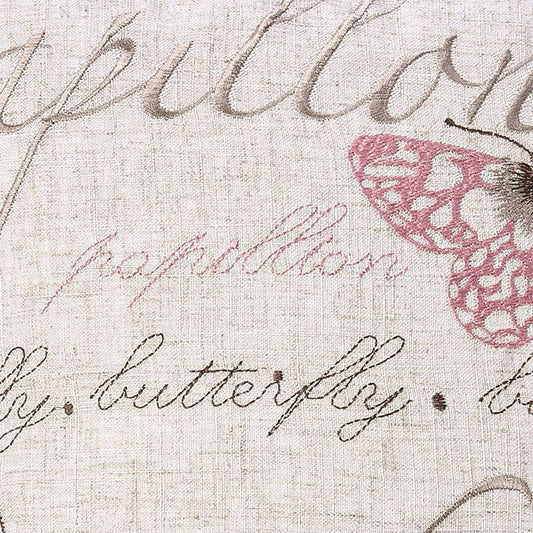 apillon
papillon
fly. butterfly. b